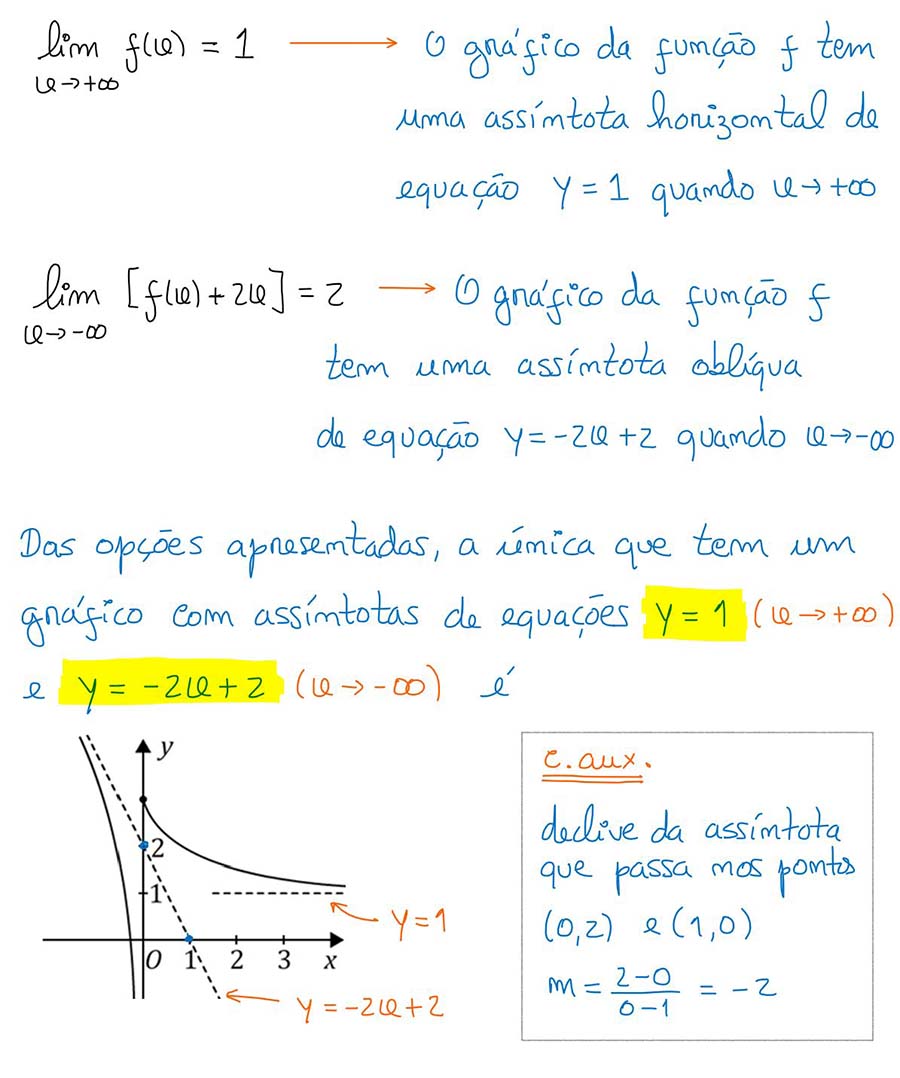 lim f(x) = 1 → O gráfico da função f tem
x→+∞
uma assíntota horizontal de
equação y = 1 quando x→+∞
lim [f(x) + 2x] = 2 → O gráfico da função f
x→-∞
tem uma assíntota oblíqua
de equação y = -2x + 2 quando x→-∞
Das opções apresentadas, a única que tem um
gráfico com assíntotas de equações y = 1 (x→+∞)
e y = -2x + 2 (x→-∞) é
y
2
1
y = 1
O 1 2 3 x
y = -2x + 2
c. aux.
declive da assíntota
que passa nos pontos
(0,2) e (1,0)
m = \frac{2-0}{0-1} = -2